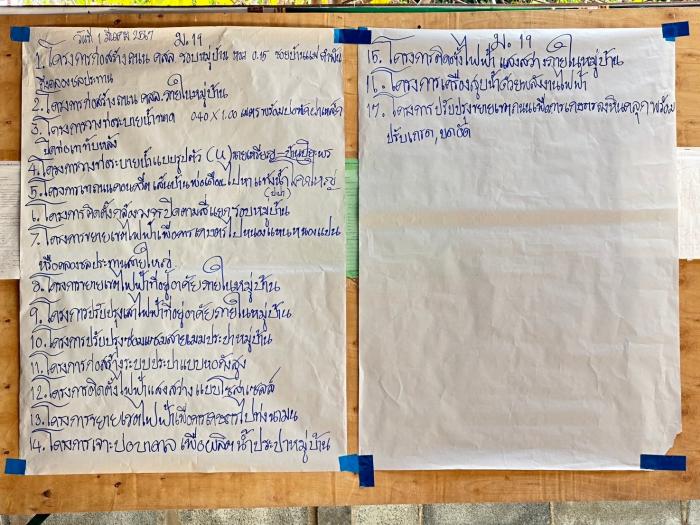 วันที่ 1 มีนาคม 2567 ม.19
1. โครงการก่อสร้างถนน คสล. รอบหมู่บ้าน หนา 0.15 ซอยบ้านแม่
ถึงคลองชลประทาน
2. โครงการก่อสร้างถนน คสล. ภายในหมู่บ้าน
3. โครงการวางท่อระบายน้ำขนาด 0.40 X 1.00 เมตร พร้อมบ่อพัก
ปิดท่อเททับหลัง
4. โครงการวางท่อระบายน้ำแบบรูปตัว (U)
5. โครงการเทถนนคอนกรีต เส้นบ้านพ่อเดือนไปหาแท้งน้ำโคกใหญ่
6. โครงการติดตั้งกล้องวงจรปิดตามสี่แยกรอบหมู่บ้าน
7. โครงการขยายเขตไฟฟ้าเพื่อการเกษตรไปหนองแหนหนองแปน
หรือคลองชลประทานสายใหญ่
8. โครงการขยายเขตไฟฟ้าที่อยู่อาศัยภายในหมู่บ้าน
9. โครงการปรับปรุงเขตไฟฟ้าที่อยู่อาศัยภายในหมู่บ้าน
10. โครงการปรับปรุงซ่อมแซมสายเมมประปาหมู่บ้าน
11. โครงการก่อสร้างระบบประปาแบบหอถังสูง
12. โครงการติดตั้งไฟฟ้าแสงสว่างแบบโซล่าเซลล์
13. โครงการขยายเขตไฟฟ้าเพื่อการเกษตรไปทุ่งนา
14. โครงการเจาะบ่อบาดาล เพื่อผลิตน้ำประปาหมู่บ้าน
ม.19
15. โครงการติดตั้งไฟฟ้า แสงสว่างภายในหมู่บ้าน
16. โครงการเครื่องสูบน้ำด้วยพลังงานไฟฟ้า
17. โครงการปรับปรุงขยายเขตถนนเพื่อการเกษตรลงหินคลุกพร้อม
ปรับเกรด, บดอัด